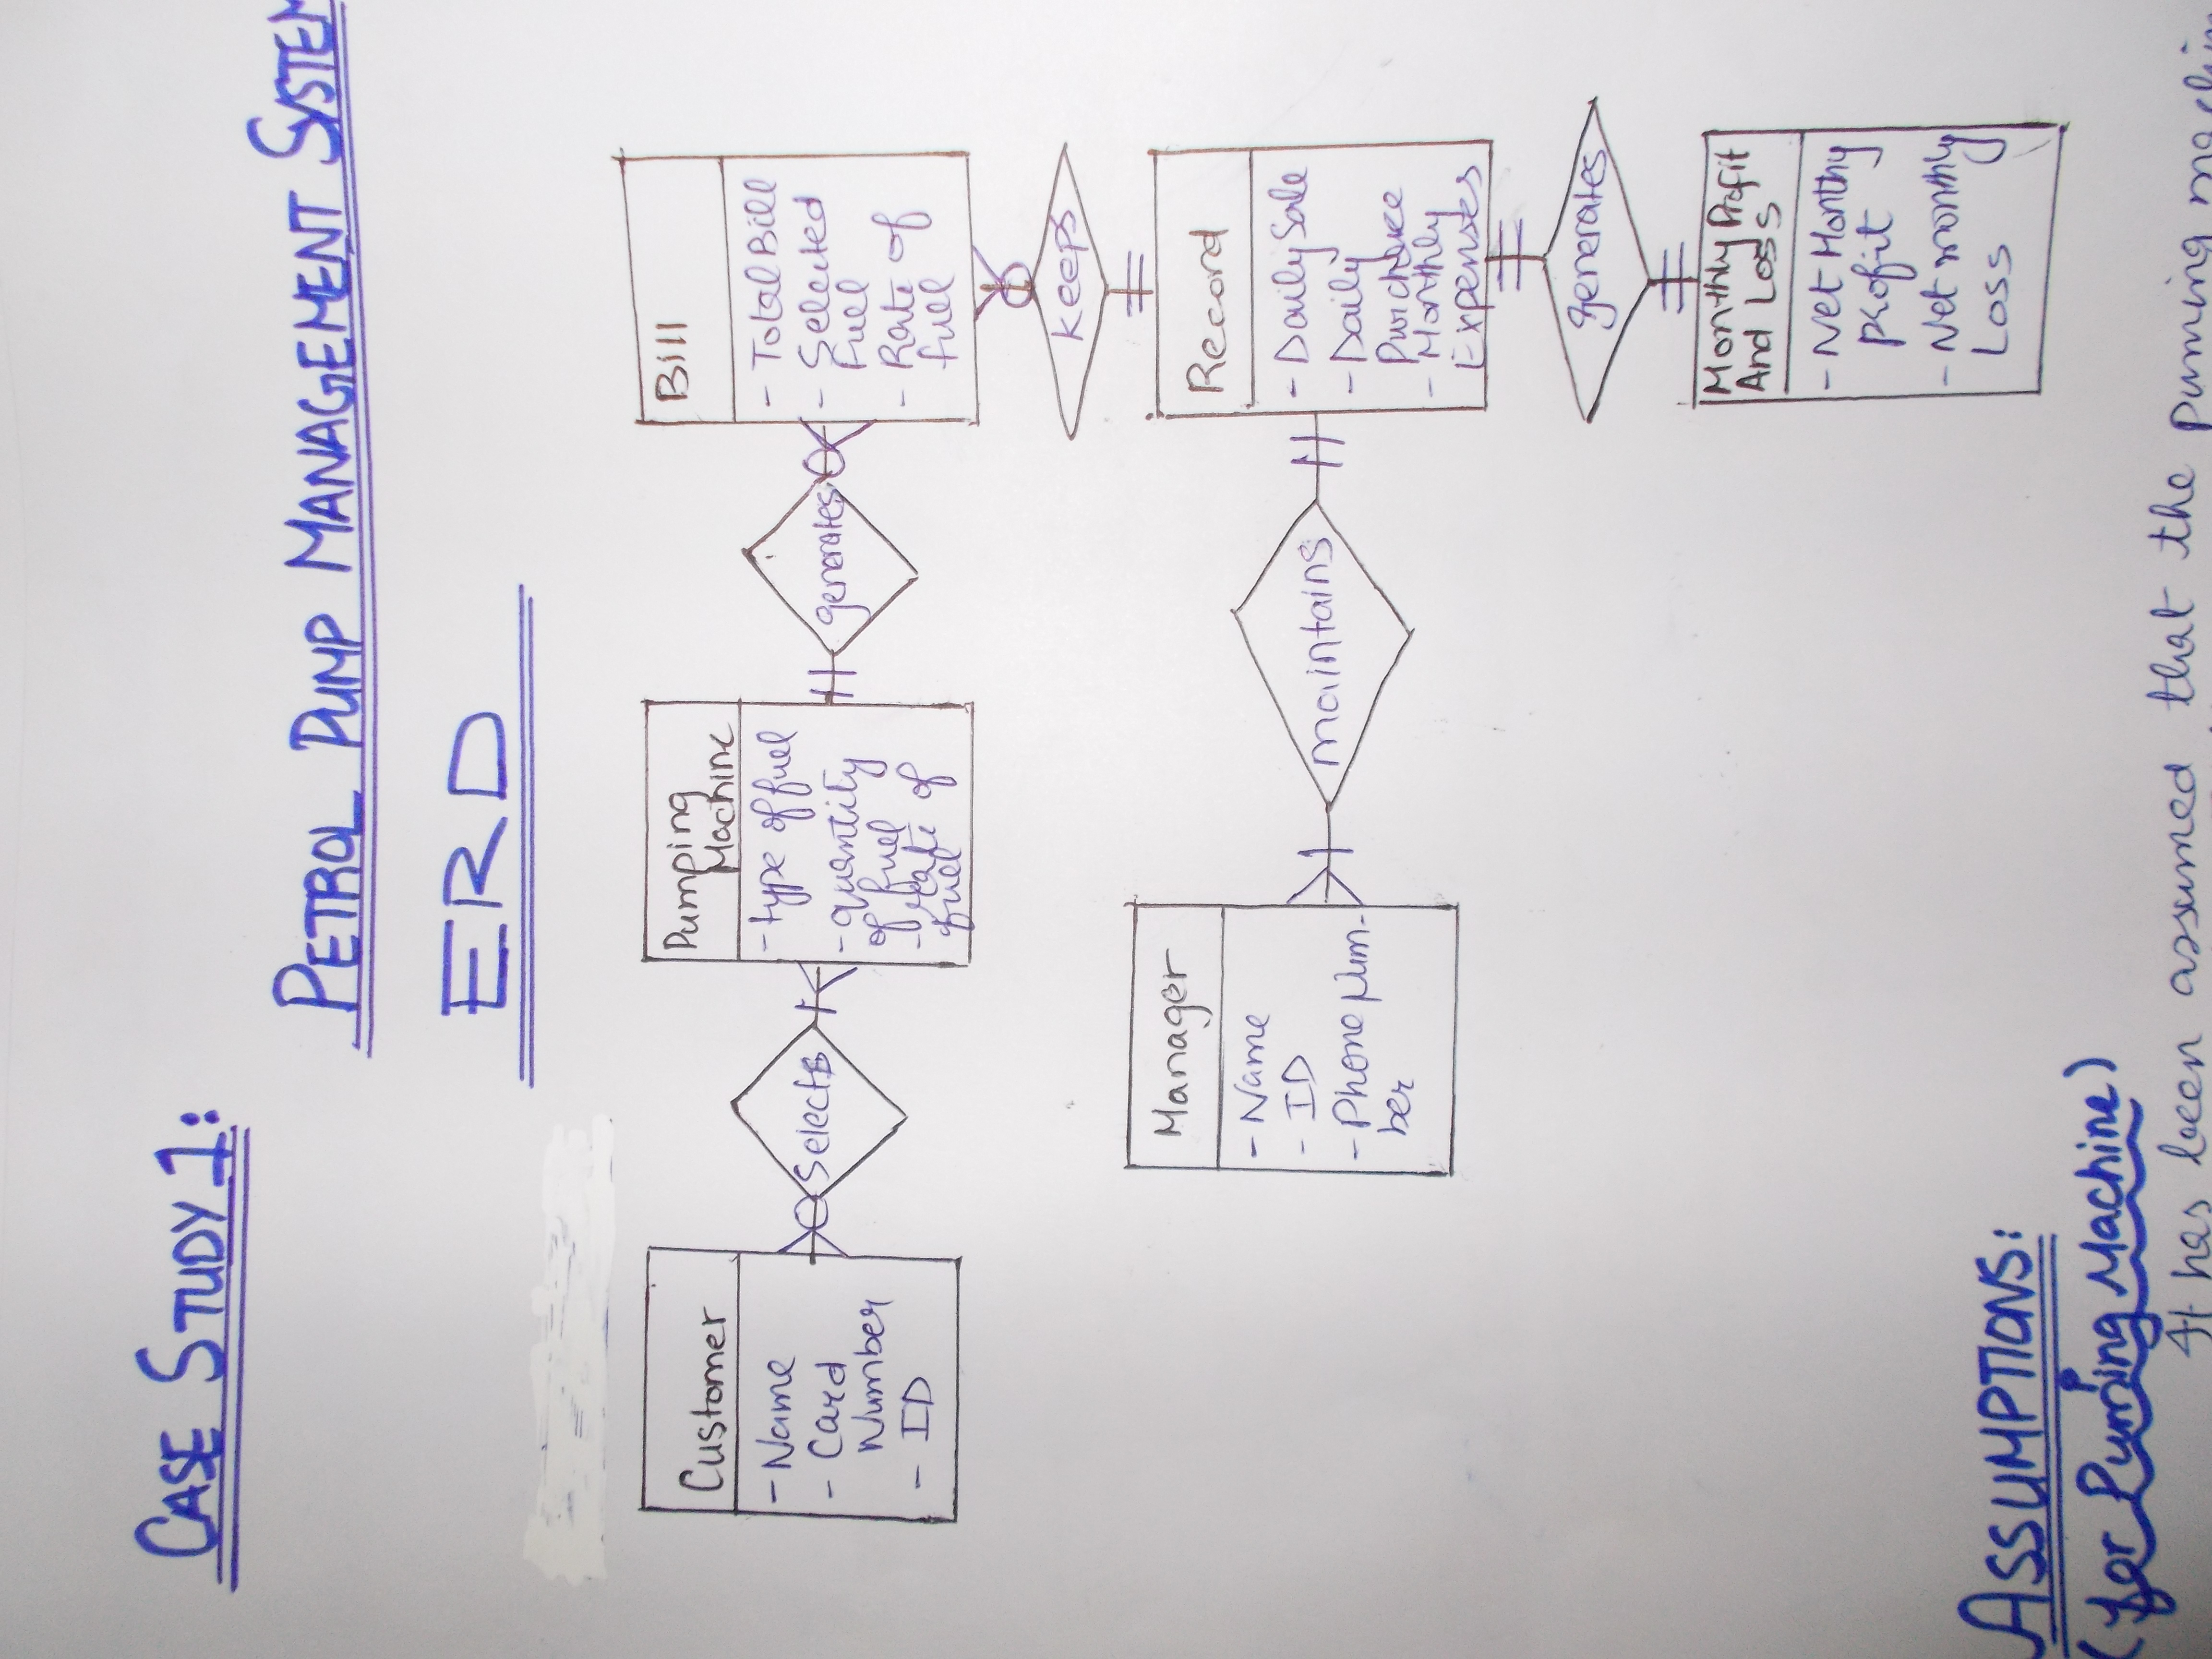 CASE STUDY 1:
PETROL PUMP MANAGEMENT SYSTEM
ERD
Customer
- Name
- Card
Number
- ID
Selects
Pumping
Machine
- type of fuel
- quantity
of fuel
- rate of
fuel
generates
Bill
- Total Bill
- Selected
Fuel
- Rate of
fuel
keeps
Manager
- Name
- ID
- Phone Num-
ber
maintains
Record
- Daily Sale
- Daily
Purchase
- Monthly
Expenses
generates
Monthly Profit
And Loss
- Net Monthy
profit
- Net monthly
Loss
ASSUMPTIONS:
(for Pumping Machine)
It has been assumed that the puming machin